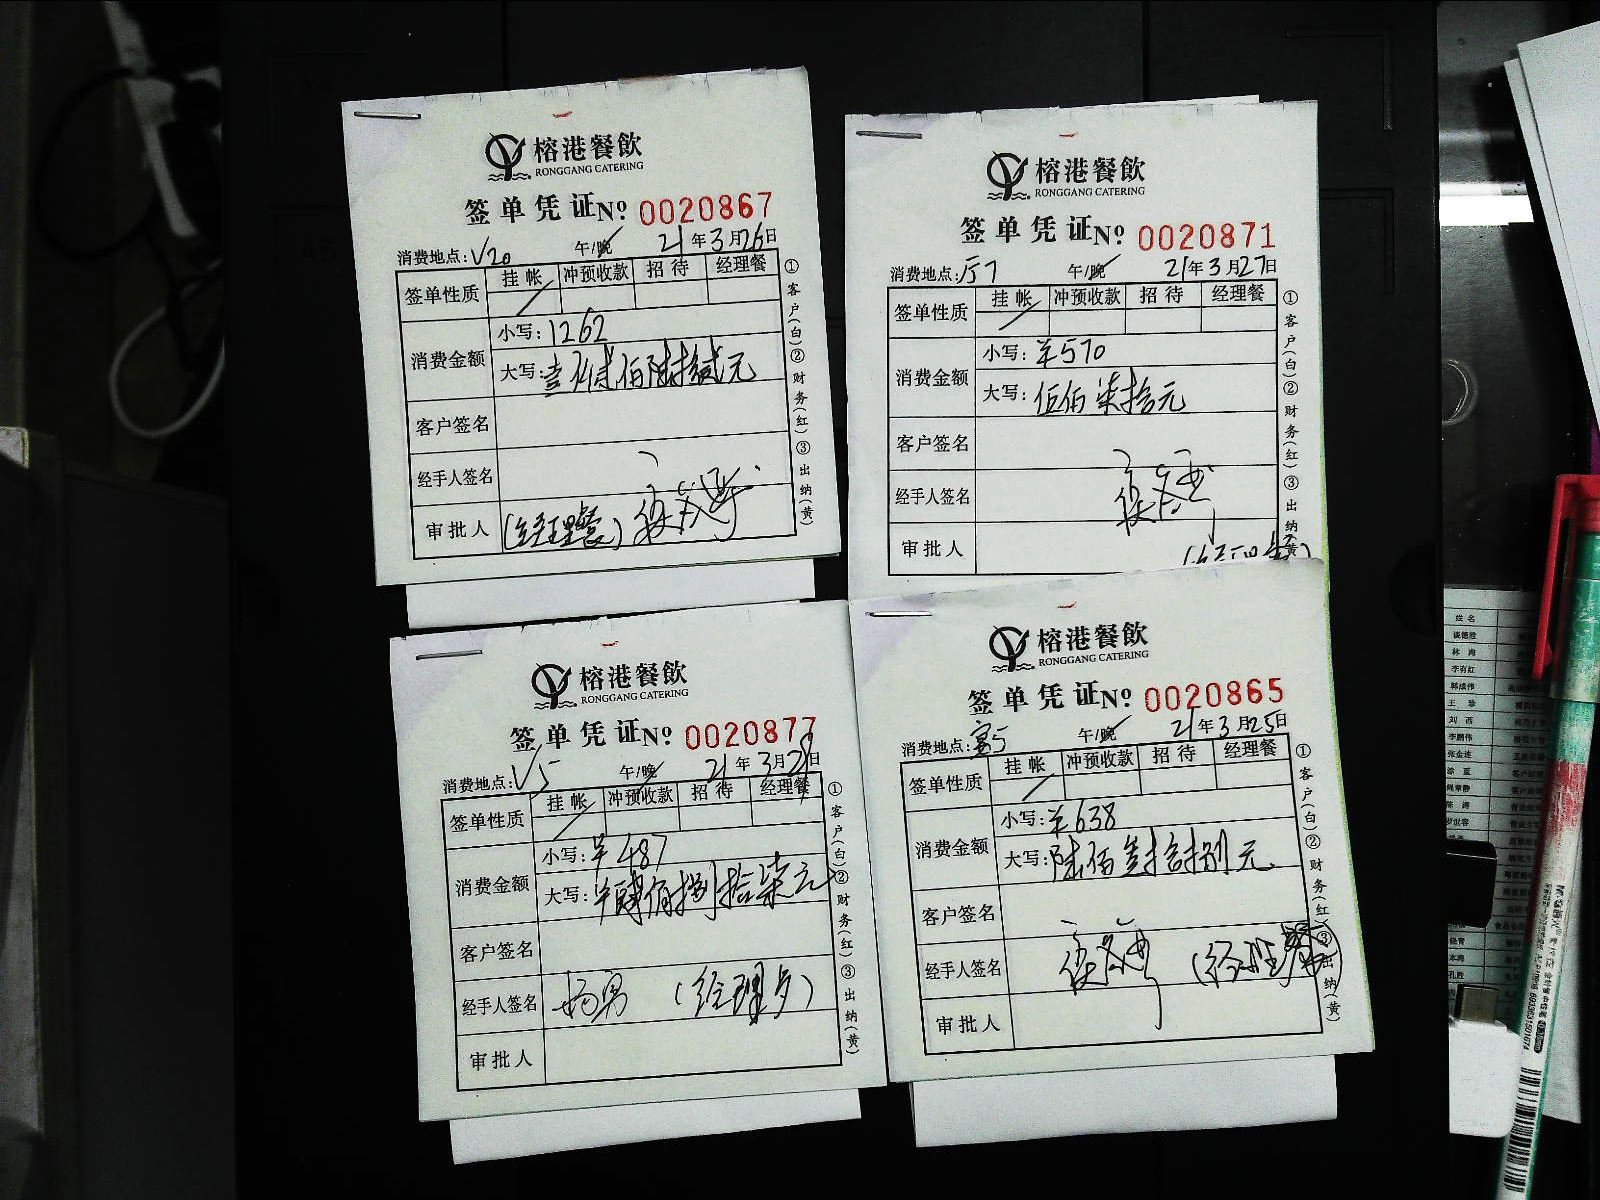 榕港餐飲
RONGGANG CATERING
签单凭证№ 0020867
消费地点: V20 午/晚 21年3月26日
签单性质 挂帐 冲预收款 招待 经理餐
消费金额
小写: 1262
大写: 壹仟贰佰陆拾贰元
客户签名
经手人签名
审批人 (经理餐)
①客户(白)②财务(红)③出纳(黄)
榕港餐飲
RONGGANG CATERING
签单凭证№ 0020871
消费地点: 厅7 午/晚 21年3月27日
签单性质 挂帐 冲预收款 招待 经理餐
消费金额
小写: ¥570
大写: 伍佰柒拾元
客户签名
经手人签名
审批人
①客户(白)②财务(红)③出纳(黄)
榕港餐飲
RONGGANG CATERING
签单凭证№ 0020877
消费地点: V5 午/晚 21年3月28日
签单性质 挂帐 冲预收款 招待 经理餐
消费金额
小写: ¥487
大写: ¥肆佰捌拾柒元
客户签名
经手人签名 杨勇
审批人
①客户(白)②财务(红)③出纳(黄)
榕港餐飲
RONGGANG CATERING
签单凭证№ 0020865
消费地点: 宴5 午/晚 21年3月25日
签单性质 挂帐 冲预收款 招待 经理餐
消费金额
小写: ¥638
大写: 陆佰叁拾捌元
客户签名
经手人签名
审批人
①客户(白)②财务(红)③出纳(黄)
姓名
林海
李有红
韩成伟
王珍
刘西
李鹏伟
张金连
涂蓝
陈涛
罗世容
6935631501674